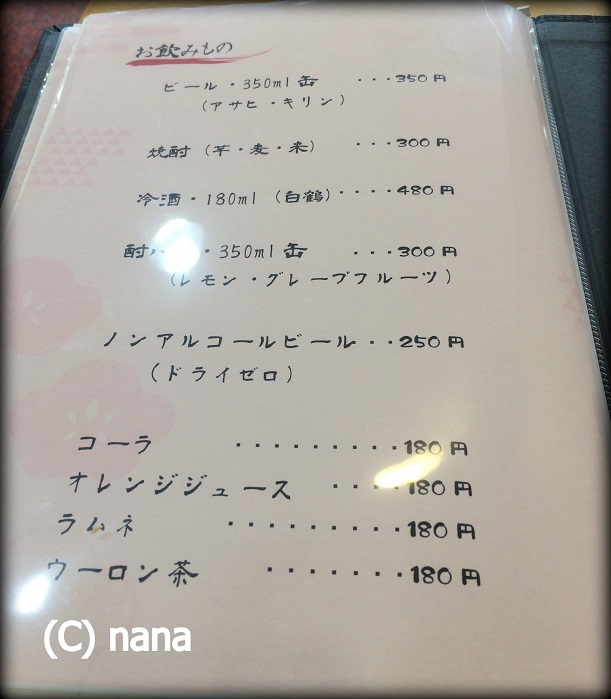 お飲みもの
ビール・350ml缶 ・・・350円
(アサヒ・キリン)
焼酎(芋・麦・米) ・・・300円
冷酒・180ml(白鶴)・・・・480円
酎ハ ・350ml缶 ・・・300円
(レモン・グレープフルーツ)
ノンアルコールビール・・250円
(ドライゼロ)
コーラ ・・・・・・・・・180円
オレンジジュース ・・・・180円
ラムネ ・・・・・・・・・180円
ウーロン茶 ・・・・・・・180円
(C) nana